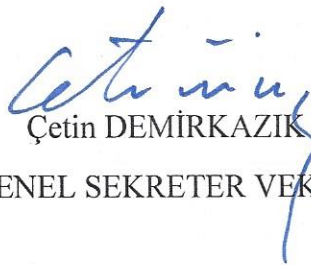 Çetin DEMİRKAZIK
ENEL SEKRETER VEK